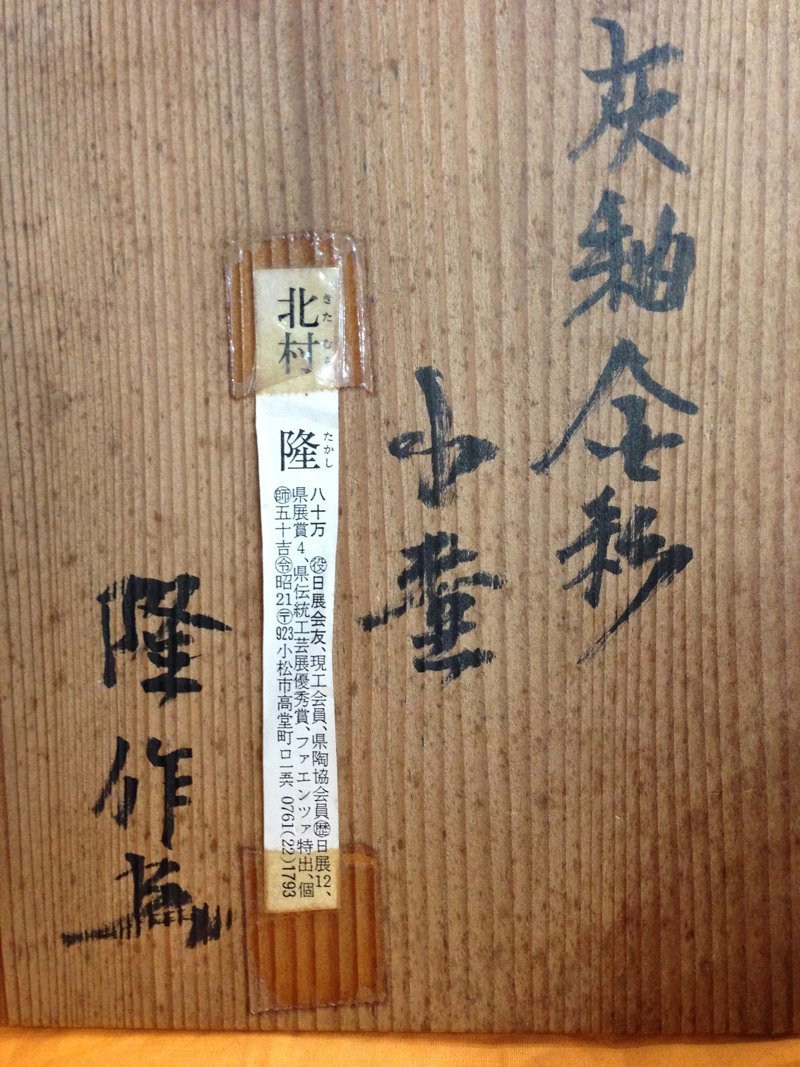 灰釉金彩
小壷
きたむら
北村
たかし
隆
八十万 (役)日展会友、現工会員、県陶協会員(歴)日展12、
県展賞4、県伝統工芸展優秀賞、ファエンツァ特出、個
(師)五十吉(令)昭21〒923小松市高堂町ロ一五六 0761(22)1793
隆作